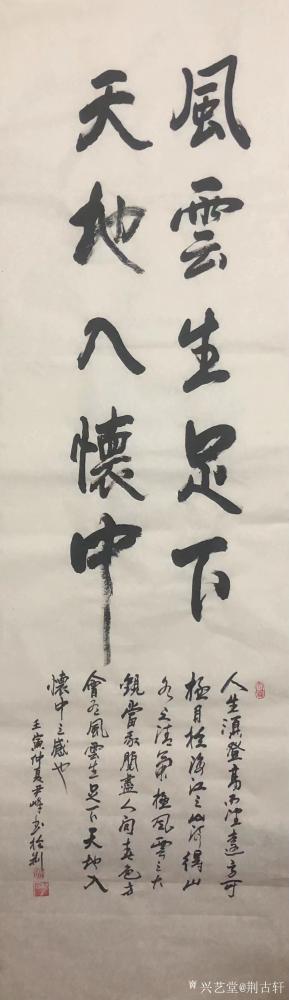 風雲生足下
天地入懷中
人生須登高而望遠方可
極目於海江之山河得山
水之清氣極風雲之大
觀當我閱盡人间春色方
會有風雲生足下天地入
懷中之感也
壬寅仲夏尹峰書於荆
兴艺堂@荆古轩